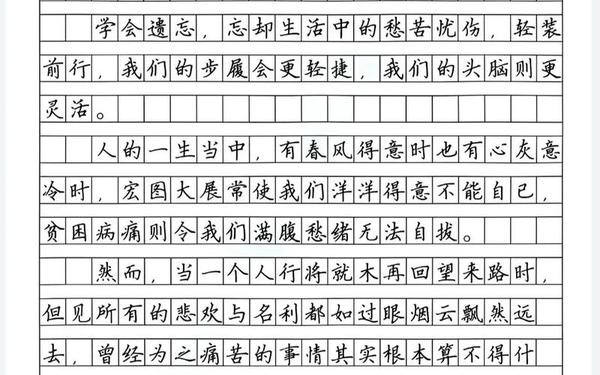 学会遗忘，忘却生活中的愁苦忧伤，轻装
前行，我们的步履会更轻捷，我们的头脑则更
灵活。
人的一生当中，有春风得意时也有心灰意
冷时，宏图大展常使我们洋洋得意不能自已，
贫困病痛则令我们满腹愁绪无法自拔。
然而，当一个人行将就木再回望来路时，
但见所有的悲欢与名利都如过眼烟云飘然远
去，曾经为之痛苦的事情其实根本算不得什